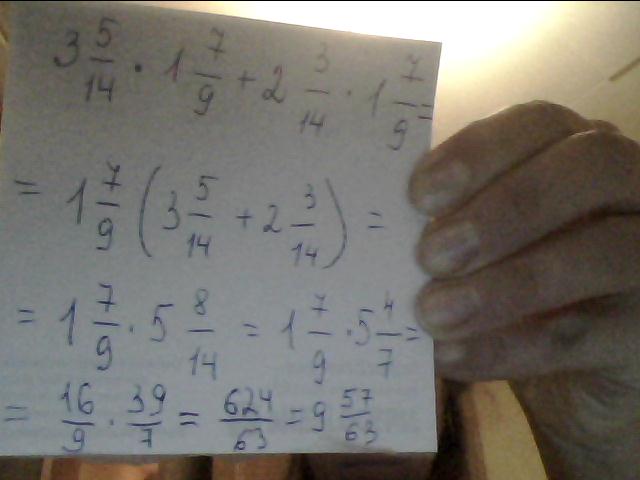 3 5/14 · 1 7/9 + 2 3/14 · 1 7/9 =
= 1 7/9 (3 5/14 + 2 3/14) =
= 1 7/9 · 5 8/14 = 1 7/9 · 5 4/7 =
= 16/9 · 39/7 = 624/63 = 9 57/63